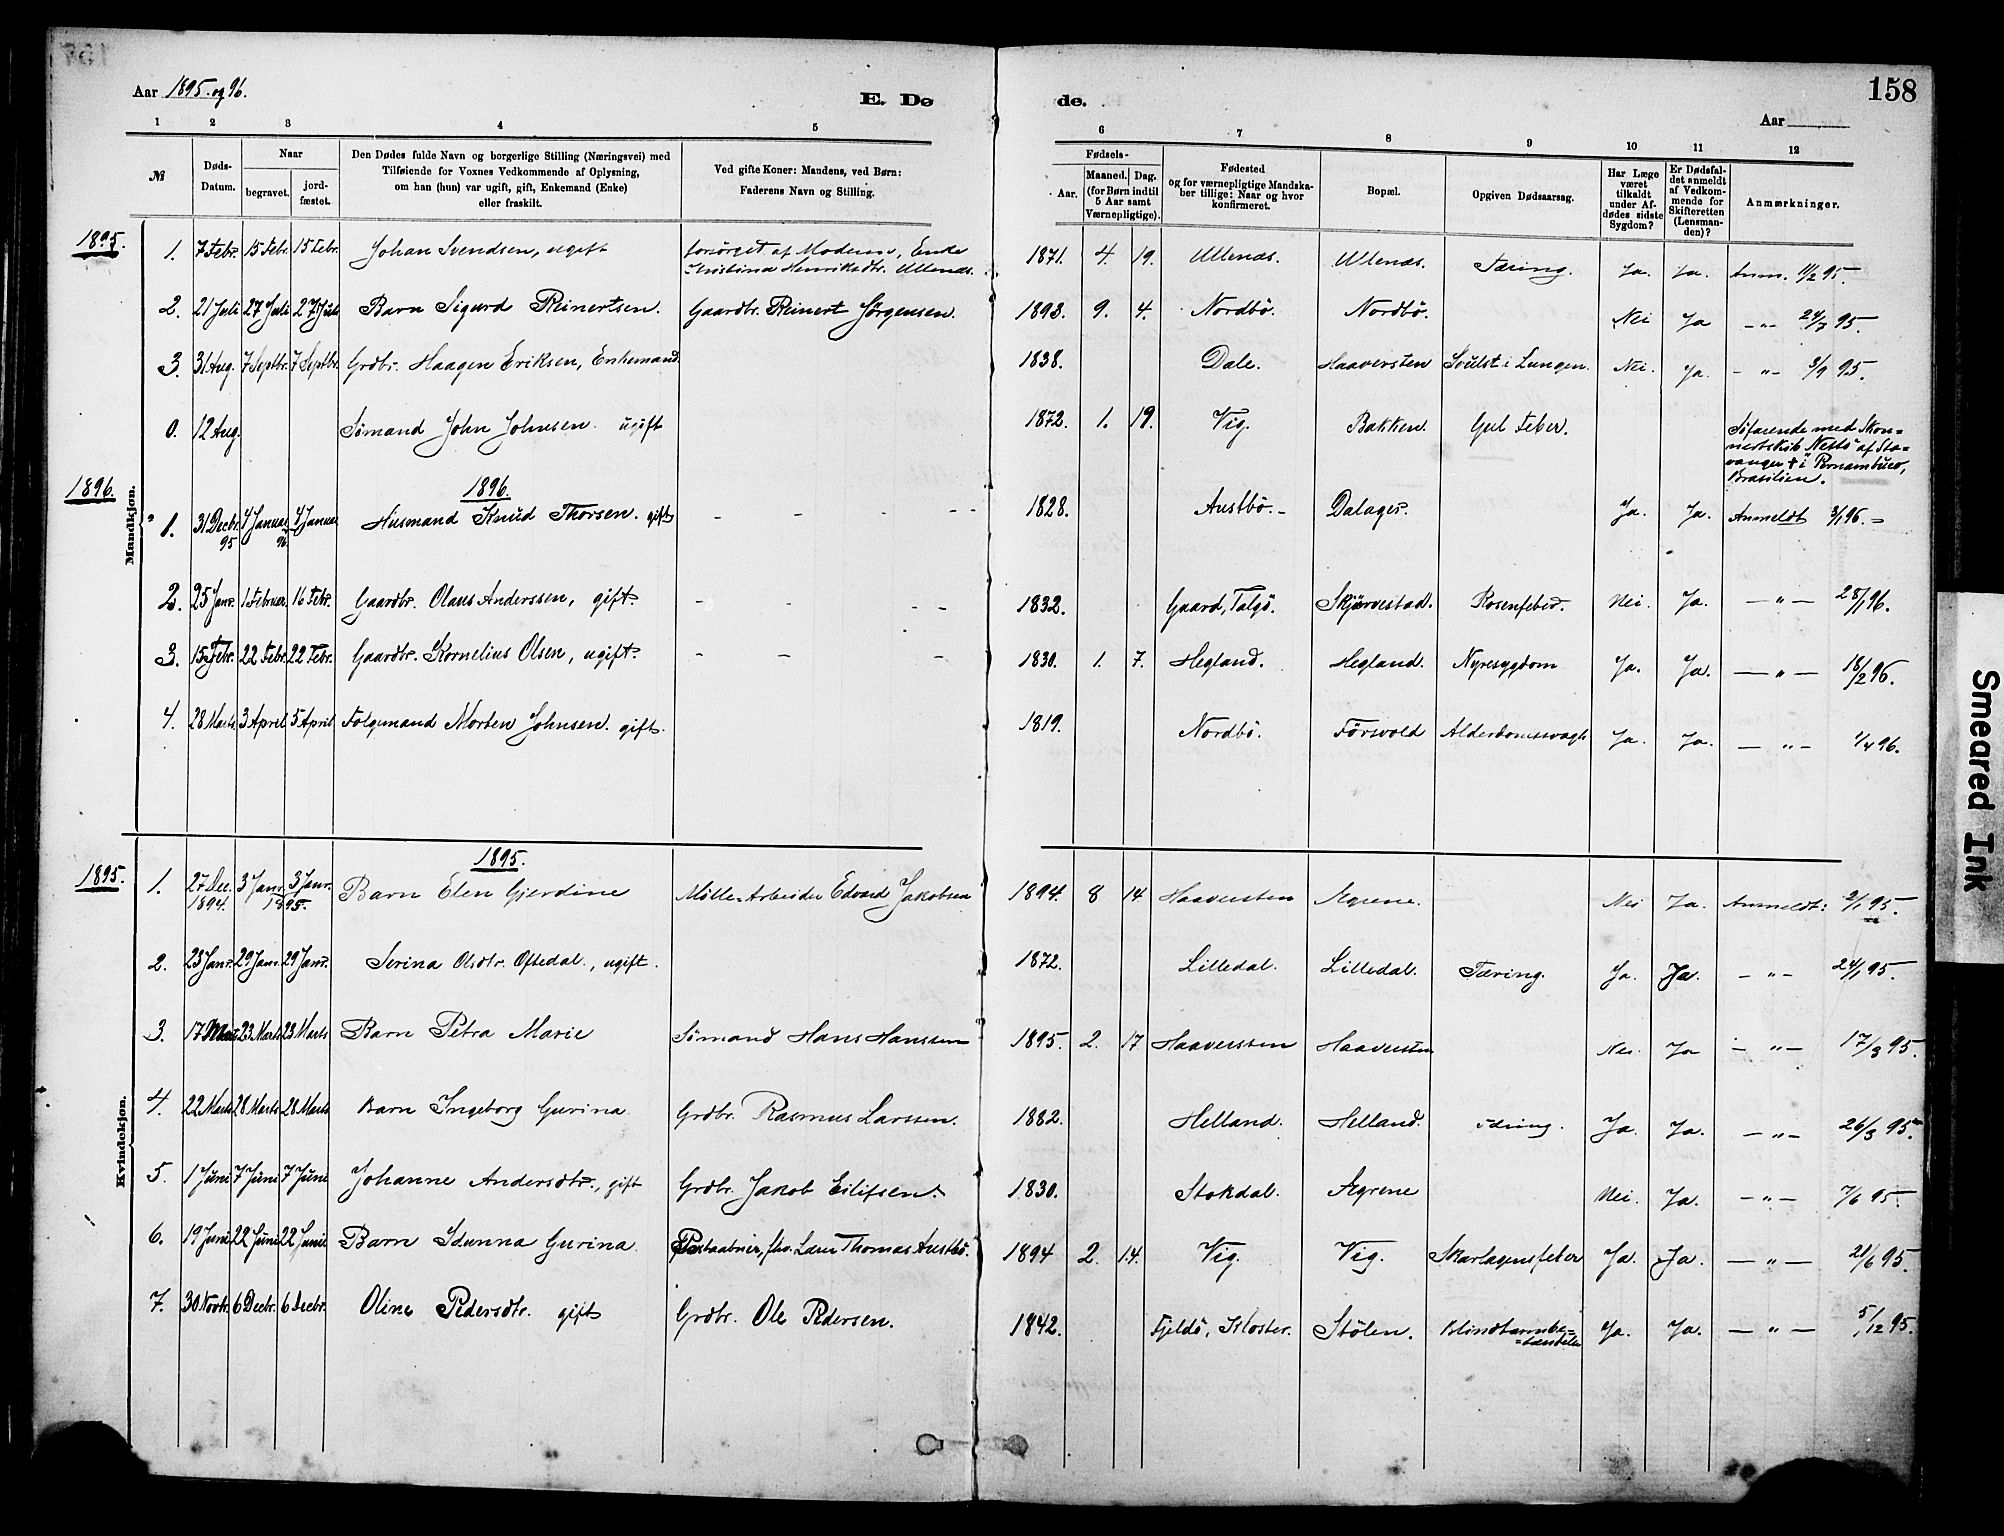 158
Aar 1895 og 96.
E. Dø de.
Aar
1 2 3 4 5 6 7 8 9 10 11 12
№
Døds-Datum.
Naar
begravet.
jord-fæstet.
Den Dødes fulde Navn og borgerlige Stilling (Næringsvei) med
Tilføiende for Voxnes Vedkommende af Oplysning,
om han (hun) var ugift, gift, Enkemand (Enke)
eller fraskilt.
Ved gifte Koner: Mandens, ved Børn:
Faderens Navn og Stilling.
Fødsels-
Aar.
Maaned. Dag.
(for Børn indtil
5 Aar samt
Værnepligtige).
Fødested
og for værnepligtige Mandska-
ber tillige: Naar og hvor
konfirmeret.
Bopæl.
Opgiven Dødsaarsag.
Har Læge
været
tilkaldt
under Af-
dødes sidste
Sygdom?
Er Dødsfal-
det anmeldt
af Vedkom-
mende for
Skifteretten
(Lensman-
den)?
Anmærkninger.
Mandkjøn.
1895.
1. 7 Febr. 15 Febr. 15 Febr. Johan Svendsen, ugift forsørget af Moderen, Enke 1871. 4. 19. Ullenæs. Ullenæs. Tæring. Ja. Ja. Anm. 11/2 95.
2. 21 Juli 27 Juli 27 Juli Barn Sigurd Reinertsen. Gaardbr. Reinert Jørgensen. 1893. 9. 4. Nordbø. Nordbø. Nei Ja –"– 24/7 95.
3. 31 Aug. 7 Septbr. 7 Septbr. Grdbr. Haagen Eriksen, Enkemand. 1838. Dale. Haaversten Svulst i Lungen. Nei. Ja. –"– 3/9 95.
0. 12 Aug. Sømand John Johnsen. ugift 1872. 1. 19. Vig. Bakken. Gul Feber. Søfarende med Skon-
nertskib "Nettô" af Sta-
vanger † i Pernambuco,
Brasilien.
1896. 1896.
1. 31 Decbr. 95 4 Januar 96. 4 Januar Husmand Knud Thorsen. gift – – – – 1828. Austbø. Dalager. Ja. Ja. Anmeldt 3/1 96.
2. 25 Janr. 1 Februar. 16 Febr. Gaardbr. Olaus Anderssen, gift. – – – – 1832. Gaard, Talgø. Skjørvestad. Rosenfeber. Nei. Ja. –"– 28/1 96.
3. 15 Febr. 22 Febr. 22 Febr. Gaardbr. Kornelius Olsen, ugift. – – – 1830. 1. 7. Hegland. Hegland. Nyresygdom Ja. Ja. –"– 18/2 96.
4. 28 Marts 3 April 5 April Folgemand Morten Johnsen. gift. 1819. Nordbø. Førsvold Alderdomssvagh. Ja. Ja. –"– 1/4 96.
Kvindekjøn.
1895. 1895.
1. 27 Dec. 1894. 3 Janr. 3 Janr. 1895. Barn Elen Gjerdine Mølle-Arbeider Edvard Jakobsen 1894. 8 14 Haaversten Ægrene. Nei Ja. Anmeldt: 2/1 95.
2. 23 Janr. 29 Janr. 29 Janr. Serina Olsdtr. Oftedal., ugift. 1872. Lilledal. Lilledal. Tæring. Ja. Ja. –"– 24/1 95.
3. 17 Marts 23 Marts 23 Marts Barn Petra Marie Sømand Hans Hanssen 1895. 2. 17 Haaversten Haaversten Nei. Ja –"– 17/3 95.
4. 22 Marts 28 Marts 28 Marts Barn Ingeborg Gurina. Grdbr. Rasmus Larssen. 1882. Helland. Helland. Tæring. Ja. Ja. –"– 26/3 95.
5. 1 Juni 7 Juni 7 Juni Johanne Andersdtr., gift Grdbr. Jakob Eilifsen. 1830. Stokdal. Ægrene Nei. Ja. –"– 7/6 95.
6. 19 Juni 22 Juni 22 Juni Barn Idunna Gurina. Postaabner, fhv. Lærer Thomas Austbø. 1894 2. 14. Vig. Vig. Skarlagensfeber Ja. Ja. –"– 21/6 95.
7. 30 Novbr. 6 Decbr. 6 Decbr. Oline Pedersdtr. gift Grdbr. Ole Pedersen. 1842. Fjeldø, Kloster. Stølen. Blindtarmbe-
tændelse Ja. Ja. –"– 5/12 95.
Smeared Ink